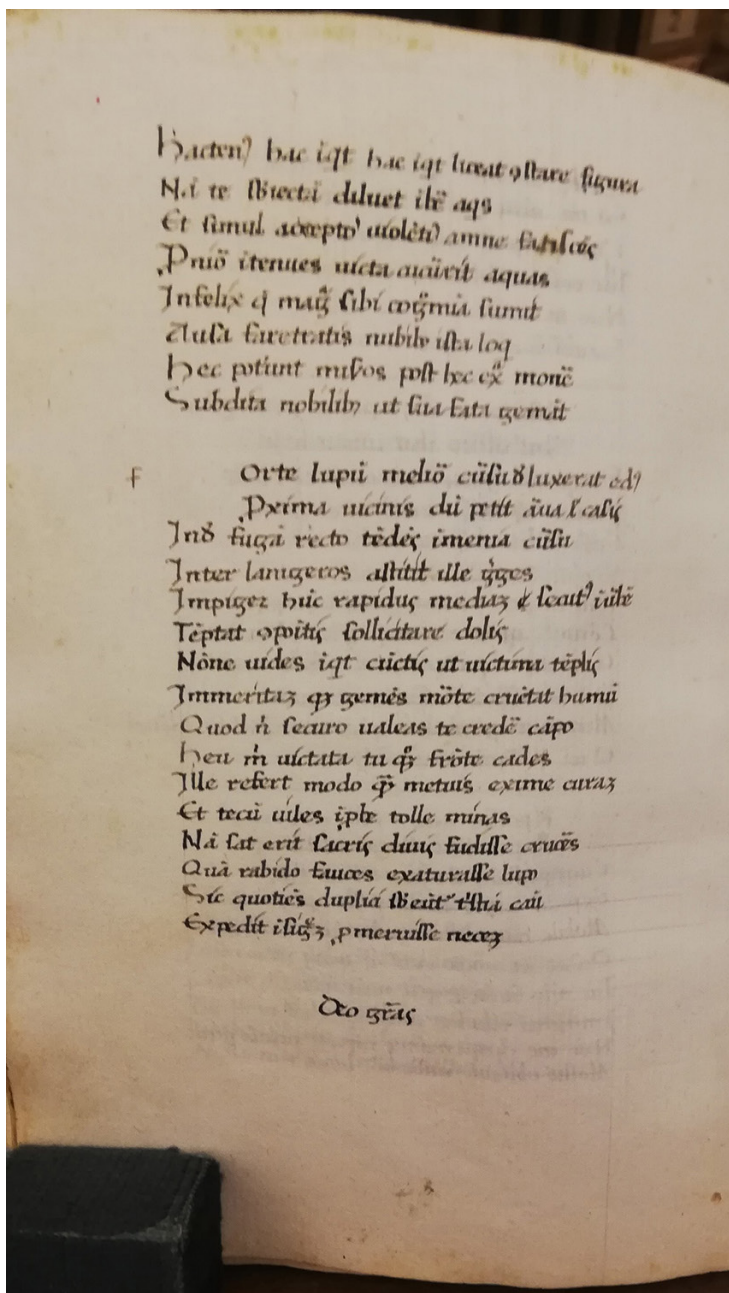 Hacten⁹ hac iqt hac iqt liceat ꝯstare figura
Nā te sbiectā diluet ibr̄ aqs
Et simul accepto⁹ uiolēt⁹ amne fatiscēs
Ꝓnio᷒ itenues uicta
aquas
Infelix q̄ mag̅ sibi cog̅mia sumit
Ausa faretratis nubib; ista loq
Hec potunt mis̄os post hec ex̄ monē
Subdita nobilib; ut sua fata gemāt
f Orte lupū melio᷒ cūsu luxerat ed⁹
Ꝓxima uicinis dū petit
casis
Ind̄ fugā recto tēdēs imenia cūsu
Inter lanigeros astitit ille g̊ges
Impiger hūc rapidus mediaꝫ
Tēptat ꝯpoitis sollicitare dolis
Nōne uides iqt cūctis ut uictima tēplis
Immeritaꝫ gemēs mōte cruētat humū
Quod n̄ securo ualeas te credē cāpo
Heu m̄ uictata tu qꝫ frōte cades
Ille refert modo metuis exime curaꝫ
Et tecū uiles īꝓbe tolle minas
Nā sat erit sacris diuis fudisse cruōs
Quā rabido fauces exaturasse lupo
Sic quotiēs duplici
Expedit īsig̅ꝫ ꝓmeruisse neceꝫ
Deo gr̄as